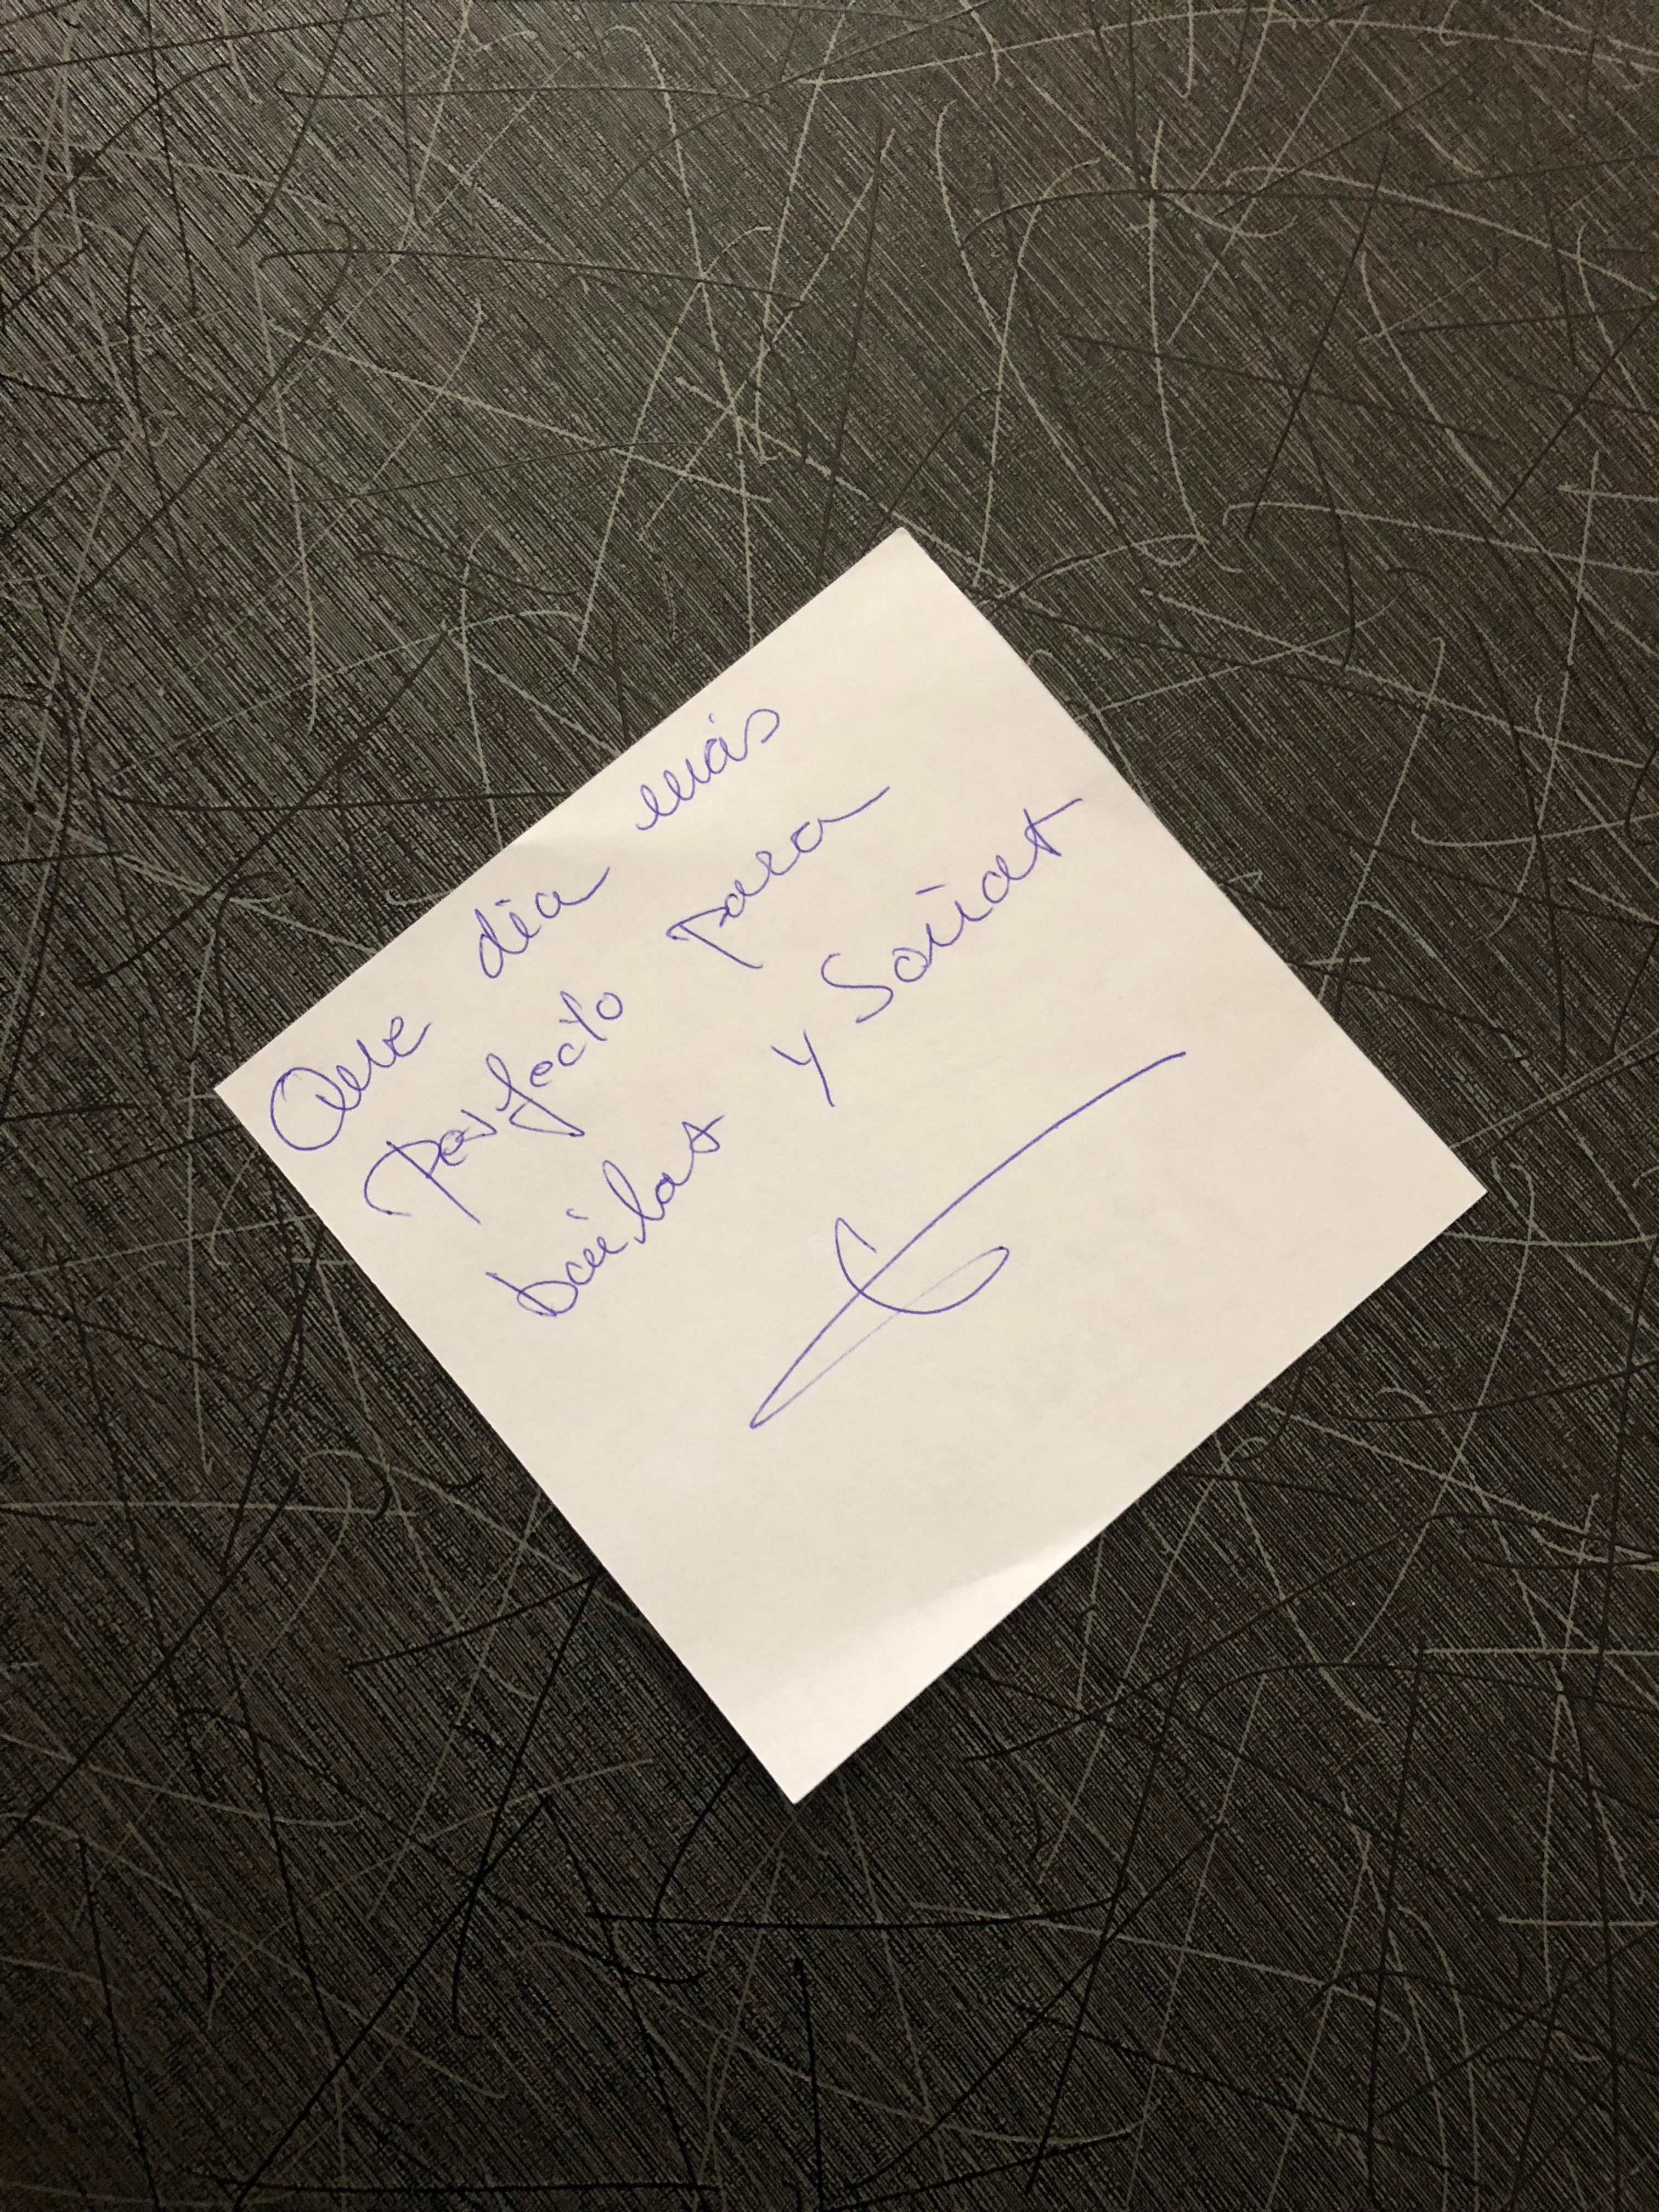 Que día más
perfecto para
bailar y soñar